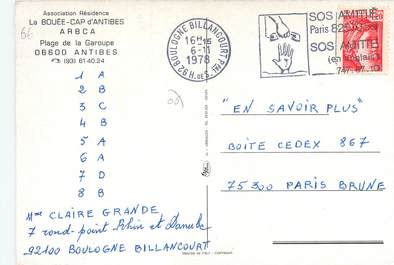 Association Résidence
La BOUÉE-CAP d'ANTIBES
ARBCA
Plage de la Garoupe
06600 ANTIBES
(93) 61.40.24
1 A
2 B
3 C
4 B
5 A
6 A
7 D
8 B
Mme CLAIRE GRANDE
7 rond-point Rhin et Danube
92100 BOULOGNE BILLANCOURT
92 BOULOGNE BILLANCOURT PPAL
H. DE S.
16H
6-11
1978
SOS AMITIÉ
Paris 825
SOS AMITIÉ
(en anglais)
"EN SAVOIR PLUS"
BOITE CEDEX 867
75300 PARIS BRUNE